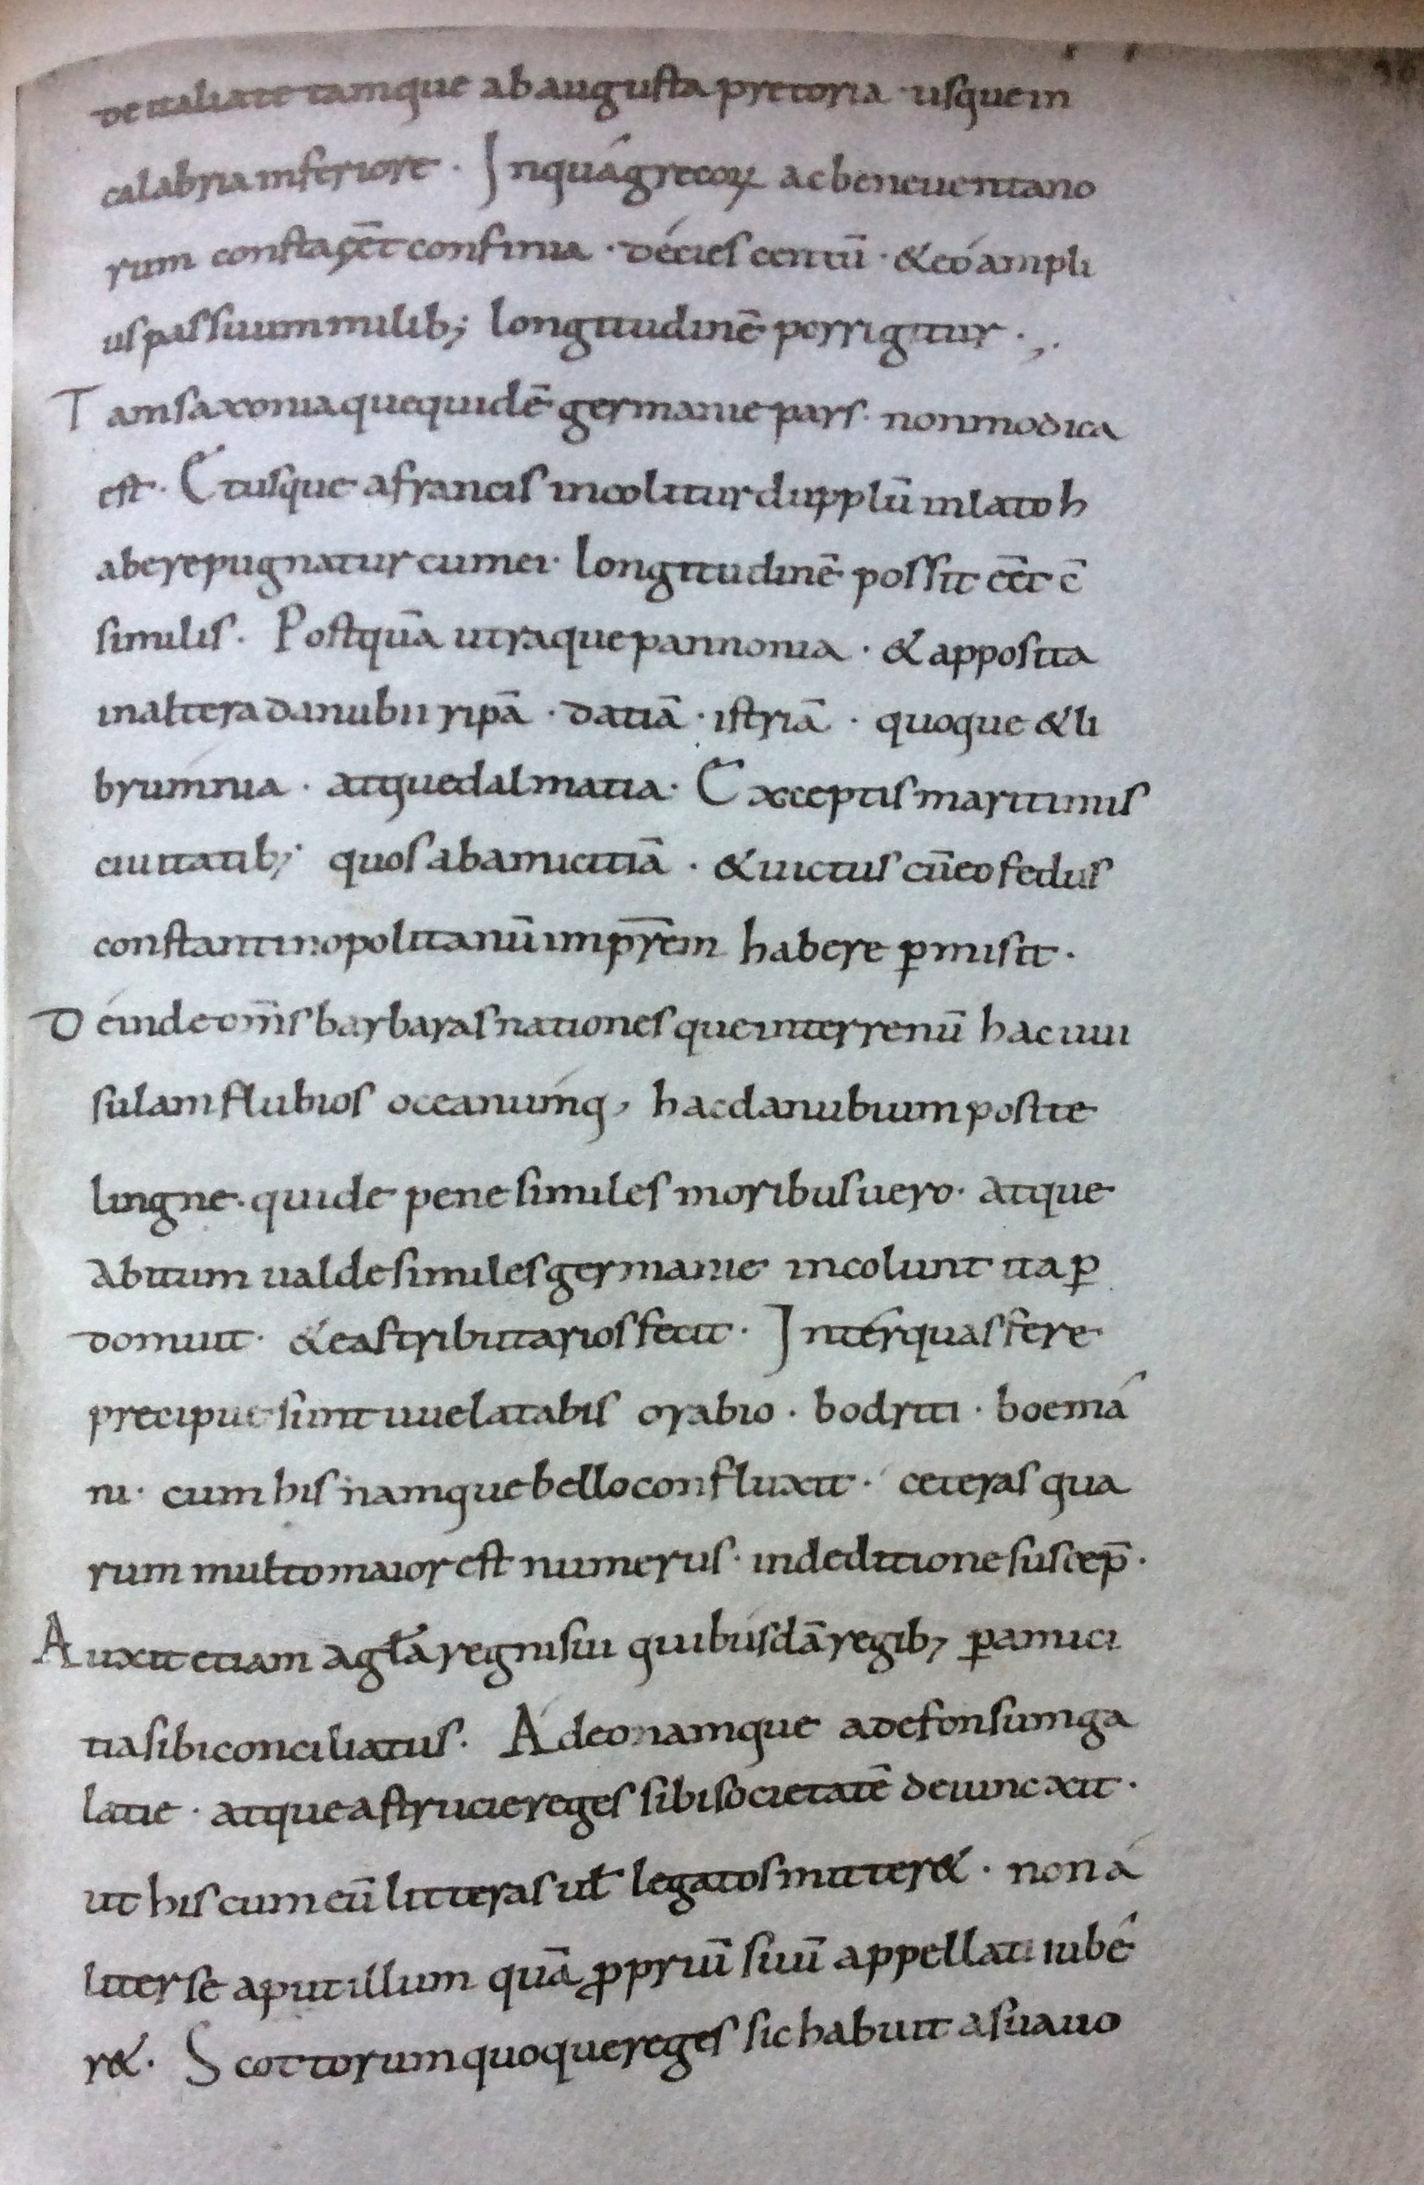 de italiate tamque ab augusta pretoria · usque in
calabria inferiore · Inquá grecoꝝ ac beneuentano
rum constaçēt confinia · décies centū · & eó ampli
us passuum milib; longitudinē porrigitur ·,·
Tam saxonia que quidē germanie pars · non modica
est · Etusque a francis incolitur dupplū in lato h
abere pugnatur cum ei · longitudinē possit cēt c̄
similis · Postquā utraque pannonia · & apposita
in altera danubii ripā · datiā · istriā · quoque & li
brumnia · atque dalmatia · Exceptis maritimis
ciuitatib; quos ab amicitiā · & uictus cūeo fedus
constantinopolitanū imp̄rem habere ꝑmisit ·
Déinde om̄s barbaras nationes que inter renū hac uui
sulam flubios oceanúmq, hac danubium posite
lingne · quide pene similes moribus uero · atque
abitum ualde similes germanie incolunt ita ꝑ
domuit · & eas tributarios fecit · Intér quas fere
precipue sunt uuelatabis orabio · bodriti · boemá
ni · cum his namque bello confluxit · ceteras qua
rum multo maior est numerus · in deditione suscep̄ ·
Auxit etiam agłā regni sui quibúsdā regib; ꝑ amici
tia sibi conciliatus · Adeo namque adefonsum ga
latie · atque astrucie reges sibi societatē deuincxit ·
ut his cum eū litteras uł legatos mitter& · non á
liter se aput illum quā ꝓpriū suū appellati iubé
r& · Scottorum quoque reges sic habuit a suauo